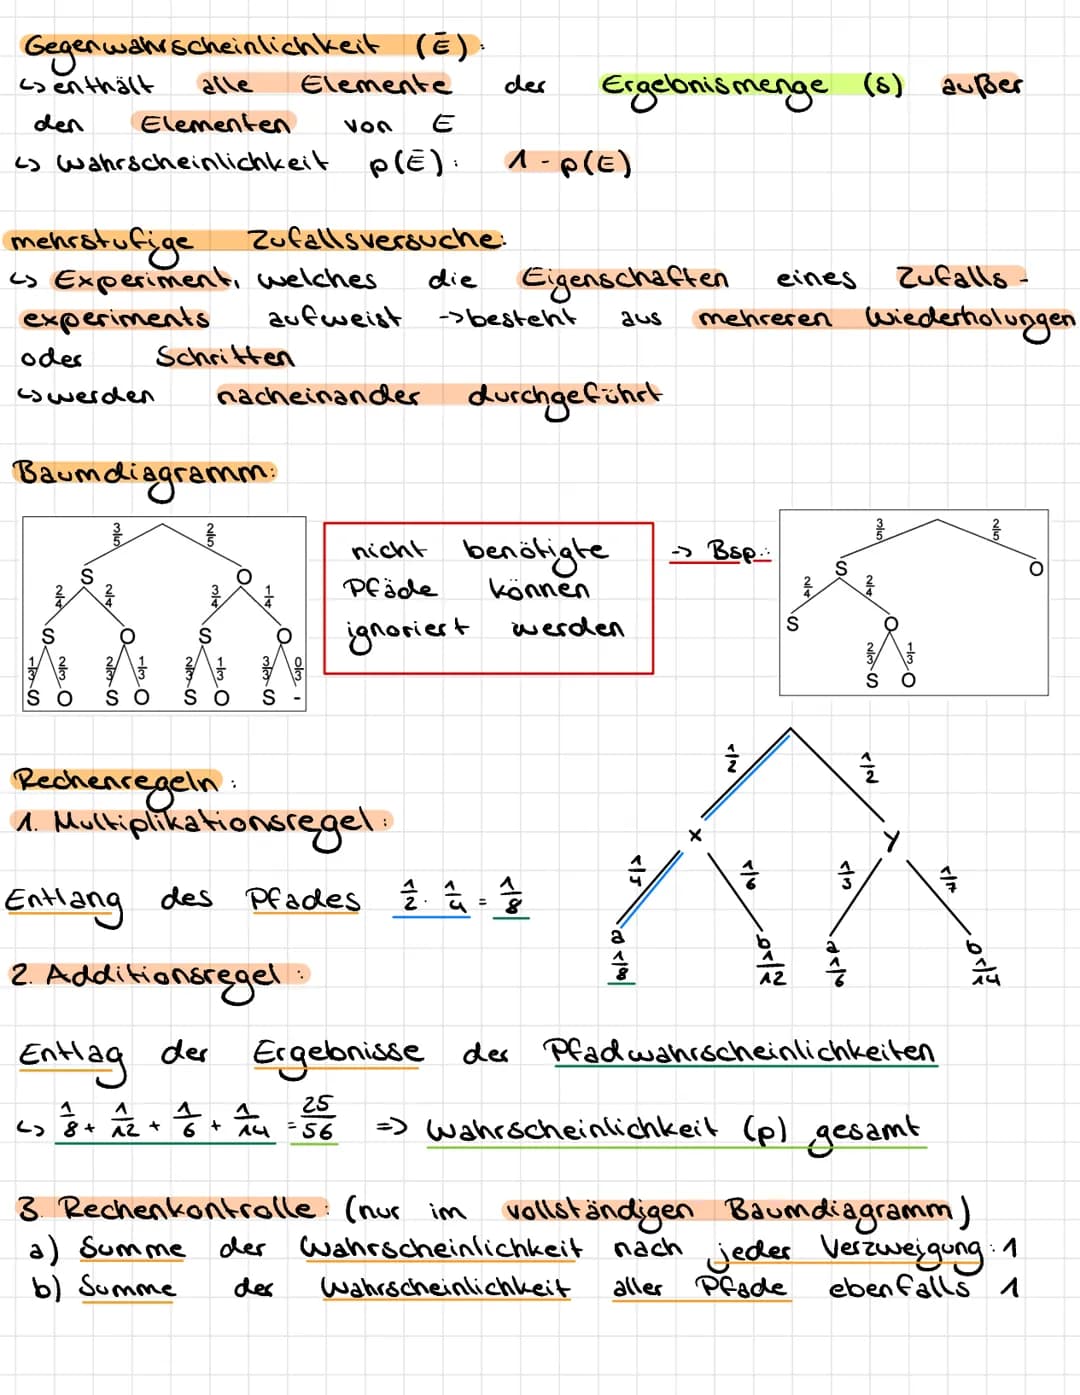 Gegenwahrscheinlichkeit (Ē):
↳ enthält alle Elemente der Ergebnismenge (S) außer
den Elementen von E
↳ Wahrscheinlichkeit p(Ē): 1 - p(E)
mehrstufige Zufallsversuche:
↳ Experiment, welches die Eigenschaften eines Zufalls-
experiments aufweist -> besteht aus mehreren Wiederholungen
oder Schritten
↳ werden nacheinander durchgeführt
Baumdiagramm:
3/5 2/5
S O
2/4 2/4 3/4 1/4
S O S O
1/3 2/3 2/3 1/3 2/3 1/3 3/3 0/3
S O S O S O S -
nicht benötigte
Pfade können
ignoriert werden
-> Bsp.:
3/5 2/5
S O
2/4 2/4
S O
2/3 1/3
S O
Rechenregeln:
1. Multiplikationsregel:
Entlang des Pfades 1/2 · 1/4 = 1/8
1/2 1/2
x y
1/4 1/6 1/3 1/7
a b a b
1/8 1/12 1/6 1/14
2. Additionsregel:
Entlag der Ergebnisse der Pfadwahrscheinlichkeiten
↳ 1/8 + 1/12 + 1/6 + 1/14 = 25/56 => Wahrscheinlichkeit (p) gesamt
3. Rechenkontrolle: (nur im vollständigen Baumdiagramm)
a) Summe der Wahrscheinlichkeit nach jeder Verzweigung: 1
b) Summe der Wahrscheinlichkeit aller Pfade ebenfalls 1